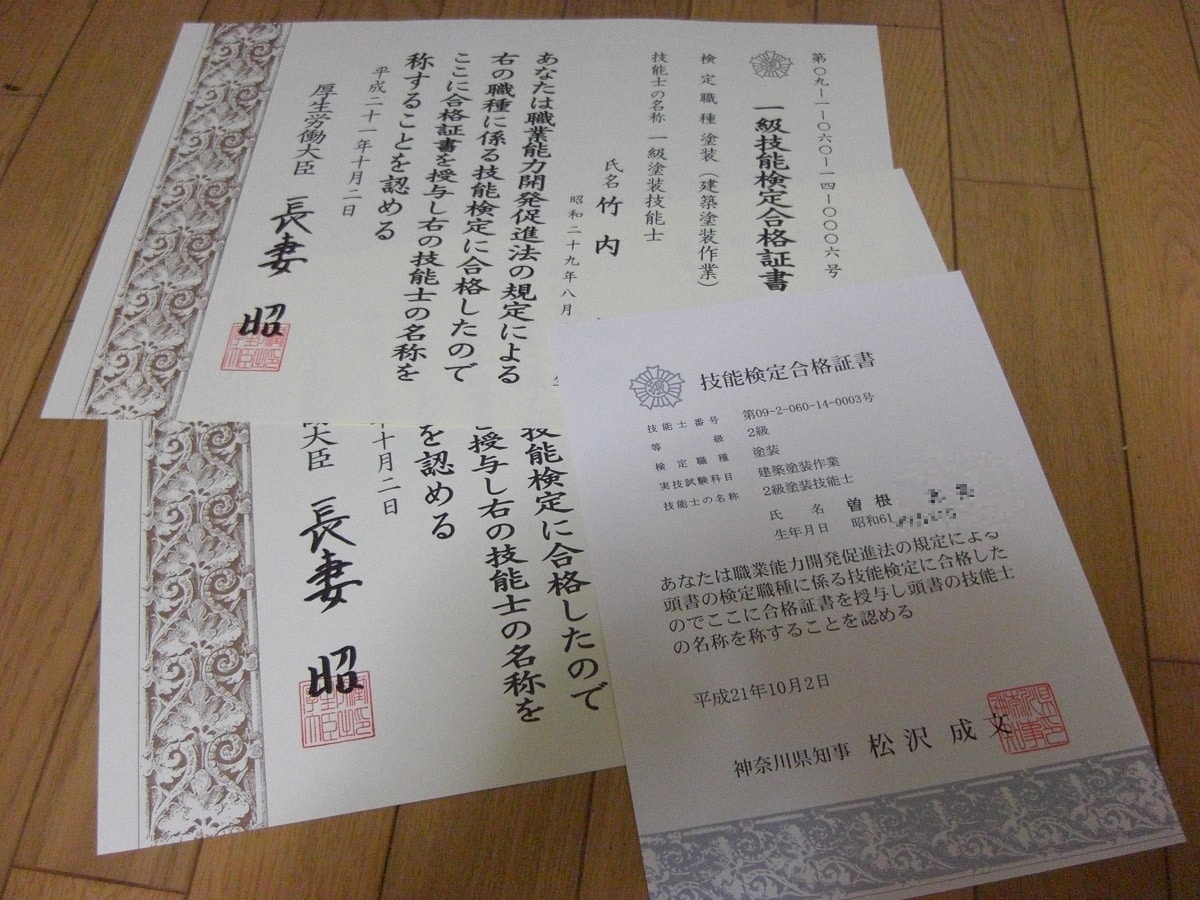 第〇九－一－〇六〇－一四－〇〇〇六号
一級技能検定合格証書
検定職種 塗装（建築塗装作業）
技能士の名称 一級塗装技能士
氏名 竹内
昭和二十九年八月
あなたは職業能力開発促進法の規定による
右の職種に係る技能検定に合格したので
ここに合格証書を授与し右の技能士の名称を
称することを認める
平成二十一年十月二日
厚生労働大臣 長妻 昭
技能検定に合格したので
授与し右の技能士の名称を
を認める
十月二日
大臣 長妻 昭
技能検定合格証書
技能士番号 第09-2-060-14-0003号
等級 2級
検定職種 塗装
実技試験科目 建築塗装作業
技能士の名称 2級塗装技能士
氏名 曽根
生年月日 昭和61
あなたは職業能力開発促進法の規定による
頭書の検定職種に係る技能検定に合格した
のでここに合格証書を授与し頭書の技能士
の名称を称することを認める
平成21年10月2日
神奈川県知事 松沢 成文